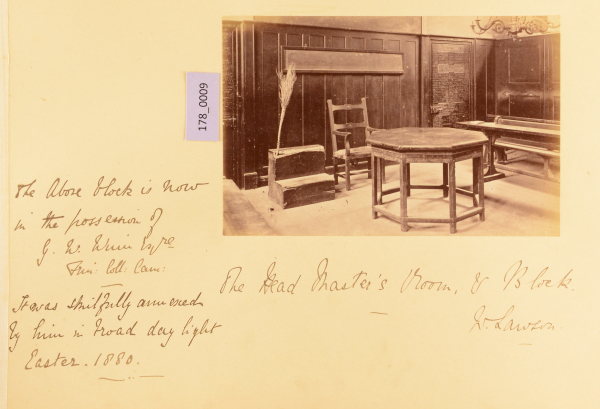 178_0009
The Above block is now
in the possession of
G. W. Esqre
Trin: Coll: Cam:
It was skilfully annexed
by him in broad day light
Easter. 1880.
The Head Master's Room, & Block.
W. Lawson.